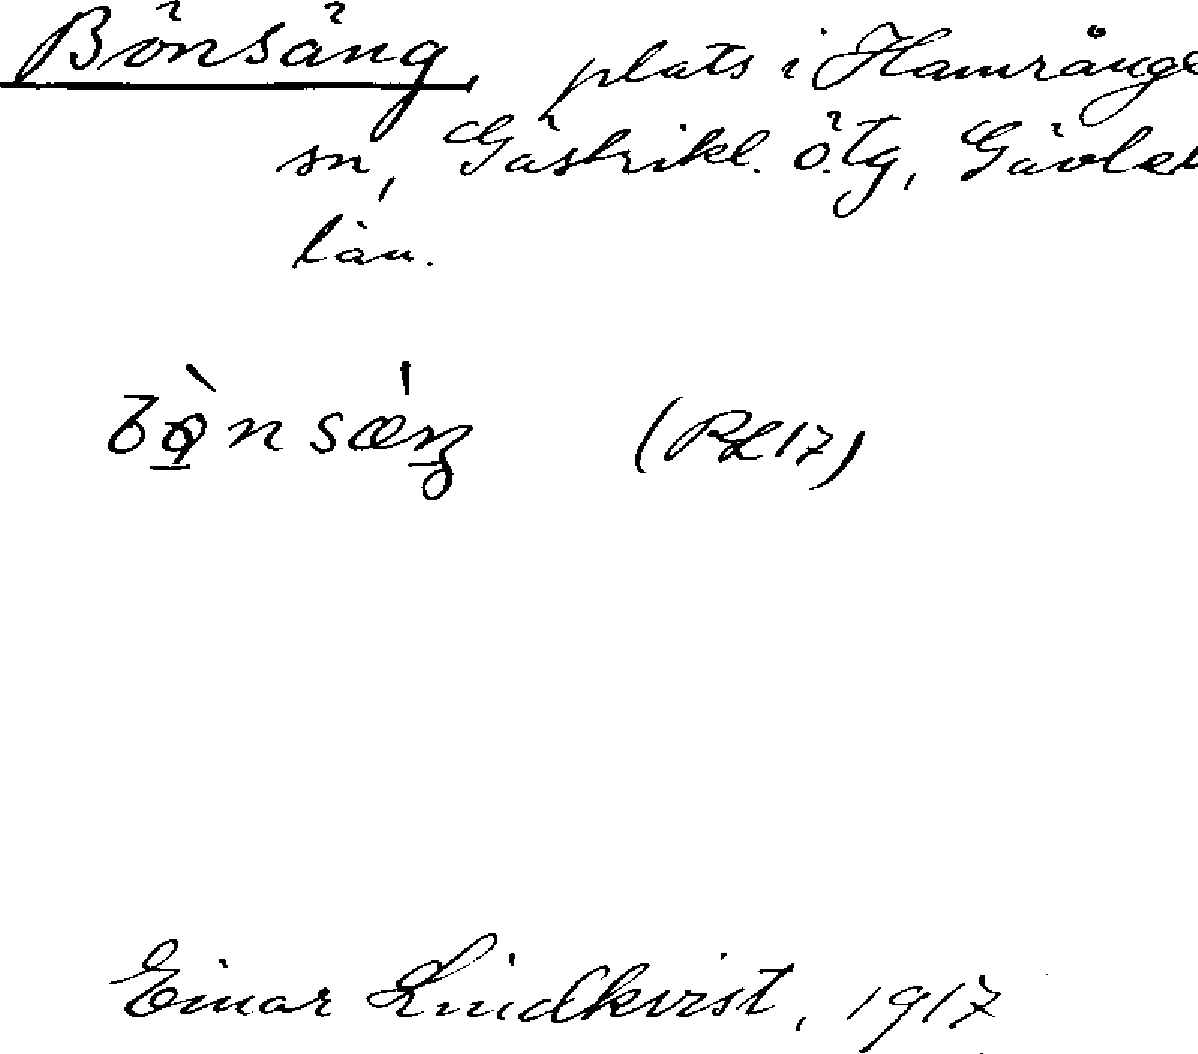 Bönsäng, plats i Hamrånge
sn, Gästrikl. ötg, Gävleb
län.
bø̀nsǽŋ (RL17)
Einar Lindkvist, 1917